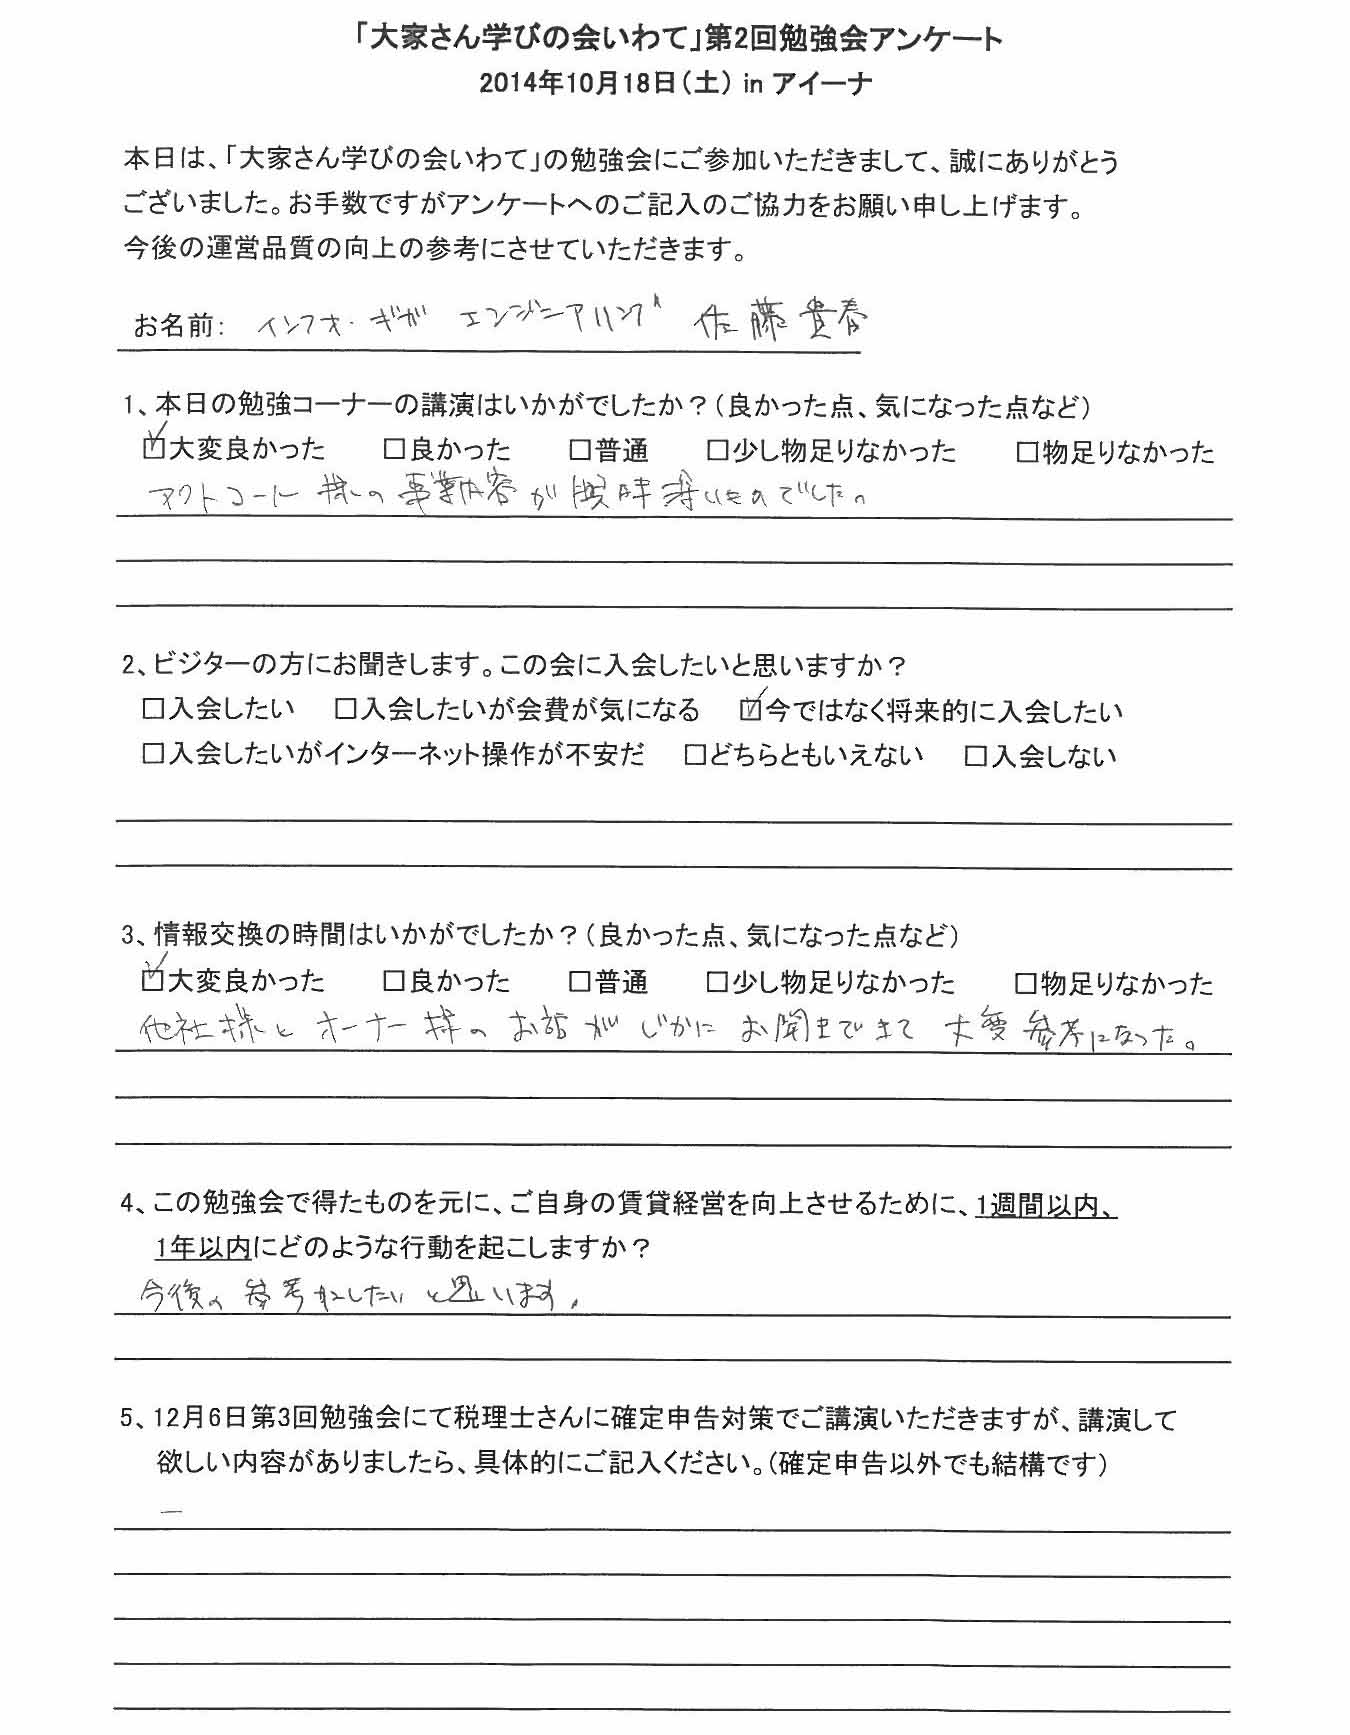 「大家さん学びの会いわて」第2回勉強会アンケート
2014年10月18日(土) in アイーナ
本日は、「大家さん学びの会いわて」の勉強会にご参加いただきまして、誠にありがとう
ございました。お手数ですがアンケートへのご記入のご協力をお願い申し上げます。
今後の運営品質の向上の参考にさせていただきます。
お名前: インフォ・ギガ エンジニアリング 佐藤貴春
1、本日の勉強コーナーの講演はいかがでしたか?(良かった点、気になった点など)
☑大変良かった □良かった □普通 □少し物足りなかった □物足りなかった
アクトコール様の事業内容が でした。
2、ビジターの方にお聞きします。この会に入会したいと思いますか?
□入会したい □入会したいが会費が気になる ☑今ではなく将来的に入会したい
□入会したいがインターネット操作が不安だ □どちらともいえない □入会しない
3、情報交換の時間はいかがでしたか?(良かった点、気になった点など)
☑大変良かった □良かった □普通 □少し物足りなかった □物足りなかった
他社様とオーナー様のお話がじかにお聞きできて大変参考になった。
4、この勉強会で得たものを元に、ご自身の賃貸経営を向上させるために、1週間以内、
1年以内にどのような行動を起こしますか?
今後の参考にしたいと思います。
5、12月6日第3回勉強会にて税理士さんに確定申告対策でご講演いただきますが、講演して
欲しい内容がありましたら、具体的にご記入ください。(確定申告以外でも結構です)
ー